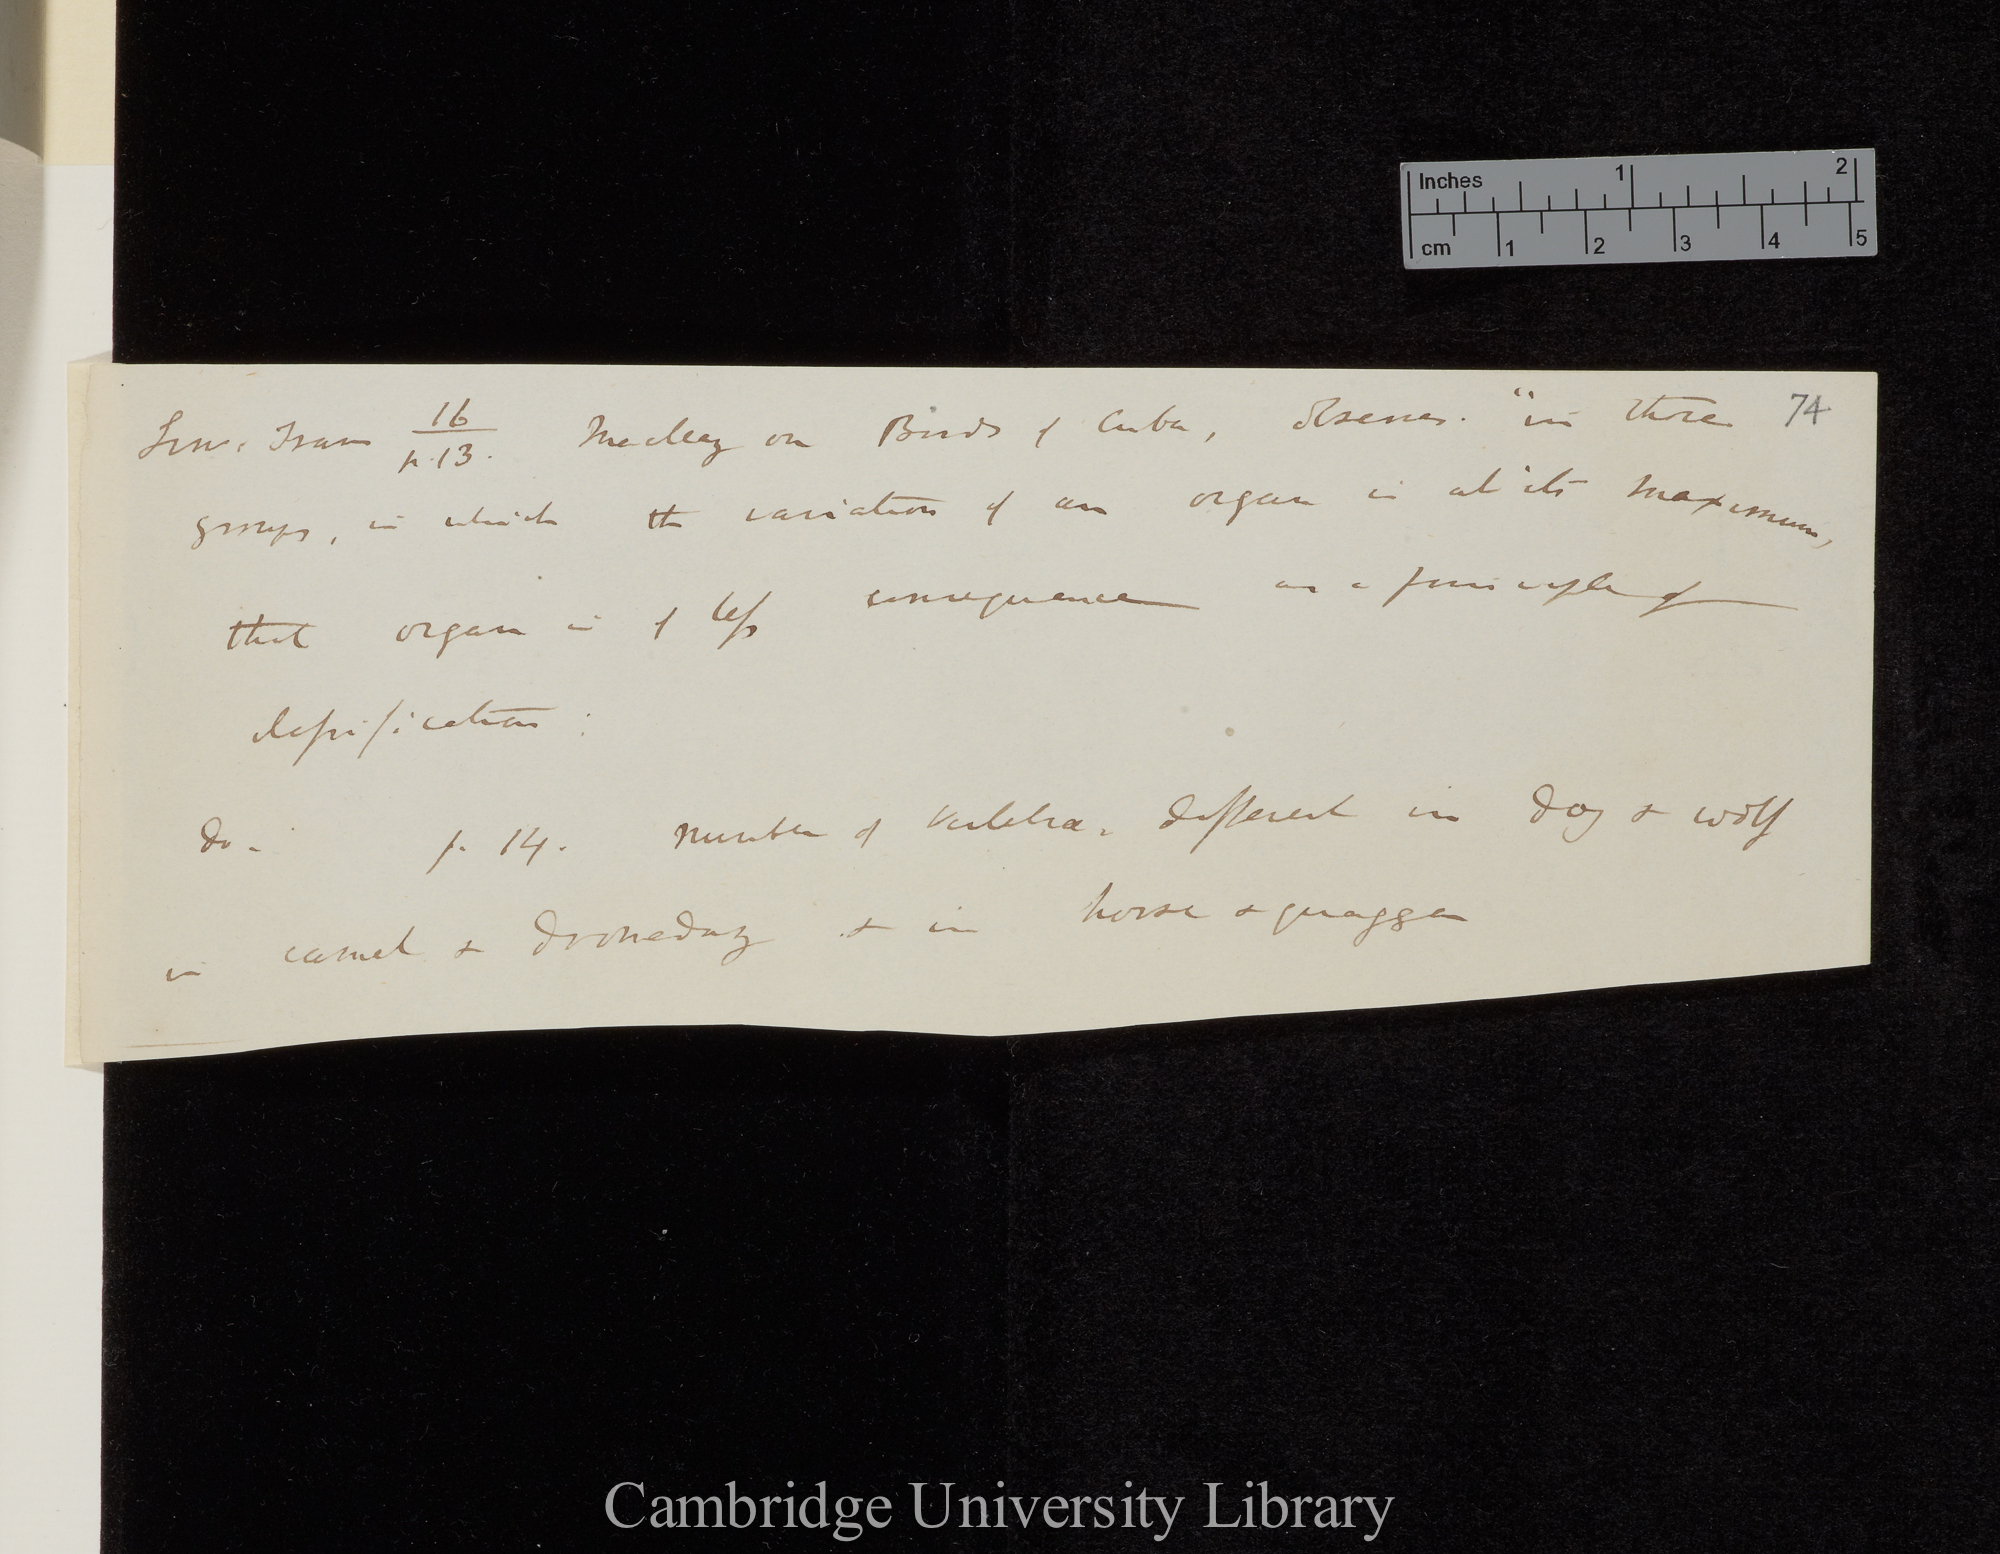 Inches 1 2
cm 1 2 3 4 5
74
Linn. Trans 16/p. 13. Macleay on Birds of Cuba, observes. "in those
groups, in which the variation of an organ is at its maximum,
that organ is of less consequence as a principle of
classification:
do. p. 14. number of vertebræ, different in dog & wolf
in camel & dromedary & in horse & quagga
Cambridge University Library